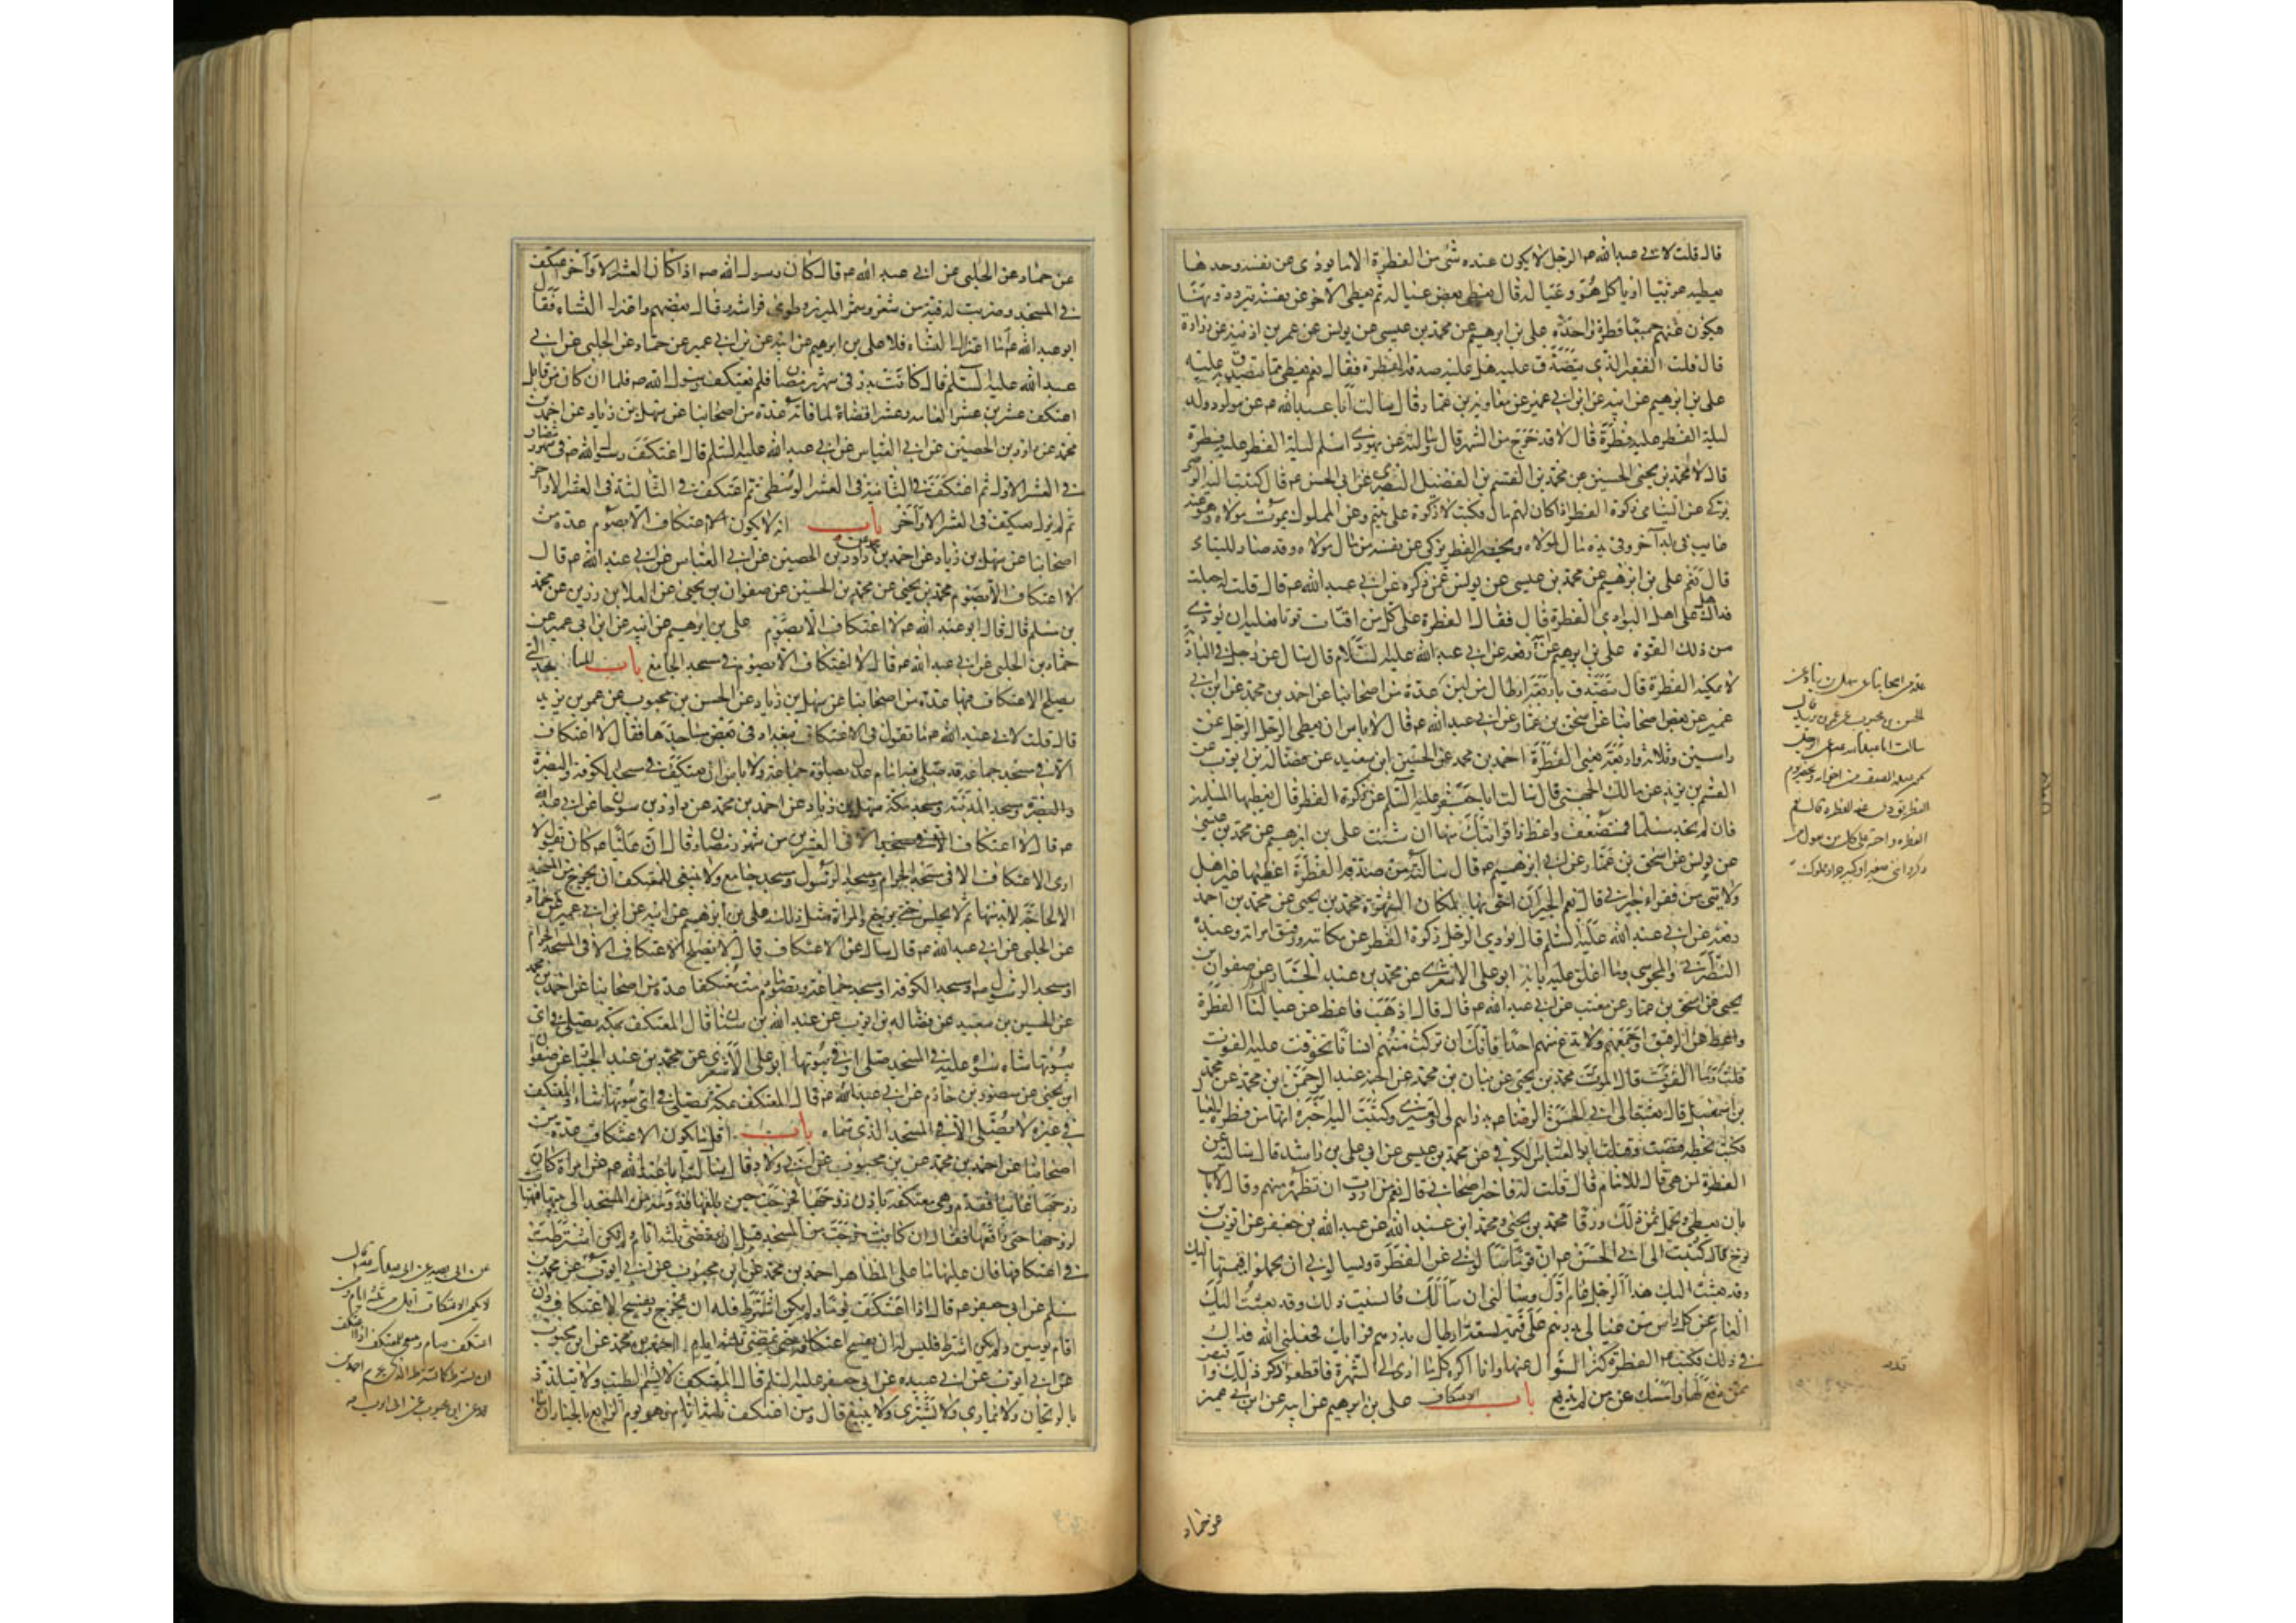 قال قلت لابي عبدالله ع الرجل لا يكون عنده شئ من الفطرة الا ما يؤدى عن نفسه وحدها
يعطيه غريبا او ياكل هو وعياله قال يعطى بعض عياله ثم يعطى الآخر عن نفسه يرددونها
فيكون عنهم جميعا فطرة واحدة علي بن ابرهيم عن محمد بن عيسى عن يونس عن عمر بن اذينة عن زرارة
قال قلت الفقير الذي يتصدق عليه هل عليه صدقة الفطرة فقال نعم يعطى مما يتصدق عليه
علي بن ابرهيم عن ابيه عن ابن ابي عمير عن معاوية بن عمار قال سالت ابا عبدالله ع عن مولود ولد
ليلة الفطر عليه فطرة قال لا قد خرج من الشهر قال وسالته عن يهودي اسلم ليلة الفطر عليه فطرة
قال لا محمد بن يحيى الحسين عن محمد بن القسم بن الفضيل البصري عن ابي الحسن ع قال كتبت اليه الوصى
يزكى عن اليتامى زكوة الفطر اذا كان لهم مال فكتب لا زكوة على يتيم وعن المملوك يموت مولاه وهو عنه
غايب في بلد آخر وفي يده مال لمولاه ويحضر الفطر يزكى عن نفسه من مال مولاه وقد صار لليتامى
قال نعم علي بن ابرهيم عن محمد بن عيسى عن يونس عمن ذكره عن ابي عبدالله ع قال قلت له جعلت
فداك هل على اهل البوادي الفطرة قال فقال الفطرة على كل من اقتات قوتا فعليه ان يؤدي
من ذلك القوت علي بن ابرهيم عن ابيه رفعه عن ابي عبدالله عليه السلام قال سال عن رجل في البادية
لا يمكنه الفطرة قال يتصدق باربعة ارطال من لبن عدة من اصحابنا عن احمد بن محمد عن ابن ابي
عمير عن بعض اصحابنا عن اسحق بن عمار عن ابي عبدالله ع قال لا باس ان يعطى الرجل الرجل عن
راسين وثلاثة واربعة يعني الفطرة احمد بن محمد عن الحسين بن سعيد عن فضالة بن ايوب عن
القسم بن بريد عن مالك الجهني قال سالت ابا جعفر عليه السلم عن زكوة الفطر قال يعطيها المسلمين
فان لم يجد مسلما فمستضعف واعط ذا قرابتك منها ان شئت علي بن ابرهيم عن محمد بن عيسى
عن يونس عن اسحق بن عمار عن ابي ابرهيم ع قال سالته عن صدقة الفطرة اعطيها غير اهل
ولايتي من فقراء جيراني قال نعم الجيران احق بها لمكان الشهرة محمد بن يحيى عن محمد بن احمد
رفعه عن ابي عبدالله عليه السلم قال يؤدى الرجل زكوة الفطر عن مكاتبه ورقيق امراته وعبده
النصراني والمجوسي وما اغلق عليه بابه ابو علي الاشعري عن محمد بن عبد الجبار عن صفوان بن
يحيى عن اسحق بن عمار عن معتب عن ابي عبدالله ع قال قال اذهب فاعط عن عيالنا الفطرة
واعط عن الرقيق اجمعهم ولا تدع منهم احدا فانك ان تركت منهم انسانا تخوفت عليه الفوت
قلت وما الفوت قال الموت محمد بن يحيى عن بنان بن محمد عن اخيه عبد الرحمن بن محمد عن محمد
بن اسمعيل قال بعثت الى ابي الحسن الرضا ع بدراهم لي ولغيري وكتبت اليه اخبره انها من فطرة العيال
فكتب بخطه قبضت وقبلت ابو العباس الكوفي عن محمد بن عيسى عن ابي علي بن راشد قال سالته عن
الفطرة لمن هي قال للامام قال قلت له فاخبر اصحابي قال نعم من اردت ان تطهره منهم وقال لا باس
بان يعطى ويحمل ثمن ذلك ورقا محمد بن يحيى ومحمد بن عبد الله عن عبدالله بن جعفر عن ايوب بن
نوح قال كتبت الى ابي الحسن ع ان قوما سالوني عن الفطرة ويسالوني ان يحملوا قيمتها اليك
وقد بعثت اليك هذا الرجل عام اول وسالني ان سالك فانسيت ذلك وقد بعثت اليك
العام عن كل راس من عيالي بدرهم على قيمة تسعة ارطال بدرهم فرايك جعلني الله فداك
في ذلك فكتب ع الفطرة قد كثر السؤال عنها وانا اكره كل ما ادى الى الشهرة فاقطعوا ذكر ذلك واقبض
ممن دفع لها وامسك عمن لم يدفع باب الاعتكاف علي بن ابرهيم عن ابيه عن ابن ابي عمير
عن حماد
عدة من اصحابنا عن سهل بن زياد عن
الحسن بن محبوب عن عمر بن يزيد قال
سالت ابا عبدالله ع عن الرجل
يكون عنده الضيف من اخوانه فيحضر يوم
الفطر يؤدى عنه الفطرة قال نعم
الفطرة واجبة على كل من يعول من
ذكر او انثى صغير او كبير حر او مملوك
عن حماد عن الحلبي عن ابي عبد الله ع قال كان رسول الله ص اذا كان العشر الاواخر اعتكف
في المسجد وضربت له قبة من شعر وشمر الميزر وطوى فراشه وقال بعضهم واعتزل النساء فقال
ابو عبدالله ع اما اعتزال النساء فلا علي بن ابرهيم عن ابيه عن ابن ابي عمير عن حماد عن الحلبي عن ابي
عبدالله عليه السلم قال كانت بدر في شهر رمضان فلم يعتكف رسول الله ص فلما ان كان من قابل
اعتكف عشرين عشرا لعامه وعشرا قضاء لما فاته عدة من اصحابنا عن سهل بن زياد عن احمد بن
محمد عن داود بن الحصين عن ابي العباس عن ابي عبدالله عليه السلم قال اعتكف رسول الله ص في شهر رمضان
في العشر الاول ثم اعتكف في الثانية في العشر الوسطى ثم اعتكف في الثالثة في العشر الاواخر
ثم لم يزل يعتكف في العشر الاواخر باب انه لا يكون الاعتكاف الا بصوم عدة من
اصحابنا عن سهل بن زياد عن احمد بن محمد عن داود بن الحصين عن ابي العباس عن ابي عبدالله ع قال
لا اعتكاف الا بصوم محمد بن يحيى عن محمد بن الحسين عن صفوان بن يحيى عن العلا بن رزين عن محمد
بن مسلم قال قال ابو عبدالله ع لا اعتكاف الا بصوم علي بن ابرهيم عن ابيه عن ابن ابي عمير عن
حماد بن الحلبي عن ابي عبدالله ع قال لا اعتكاف الا بصوم في مسجد الجامع باب المساجد التي
يصلح الاعتكاف فيها عدة من اصحابنا عن سهل بن زياد عن الحسن بن محبوب عن عمر بن يزيد
قال قلت لابي عبدالله ع ما تقول في الاعتكاف ببغداد في بعض مساجدها فقال لا اعتكاف
الا في مسجد جماعة قد صلى فيه امام عدل بصلوة جماعة ولا باس ان يعتكف في مسجد الكوفة والبصرة
والبصرة ومسجد المدينة ومسجد مكة سهل بن زياد عن احمد بن محمد عن داود بن سرحان عن ابي عبدالله
ع قال لا اعتكاف الا في العشرين من شهر رمضان وقال ان عليا ع كان يقول لا
ارى الاعتكاف الا في مسجد الحرام ومسجد الرسول ومسجد جامع ولا ينبغي للمعتكف ان يخرج من المسجد
الا لحاجة لابد منها ثم لا يجلس حتى يرجع والمراة مثل ذلك علي بن ابرهيم عن ابيه عن ابن ابي عمير عن حماد
عن الحلبي عن ابي عبدالله ع قال سال عن الاعتكاف قال لا يصلح الاعتكاف الا في المسجد الحرام
او مسجد الرسول ص او مسجد الكوفة او مسجد جماعة وتصوم ما دمت معتكفا عدة من اصحابنا عن احمد بن محمد
عن الحسين بن سعيد عن فضالة بن ايوب عن عبدالله بن سنان قال المعتكف بمكة يصلي في اي
بيوتها شاء سواء عليه في المسجد صلى او في بيوتها ابو علي الاشعري عن محمد بن عبد الجبار عن صفوان
بن يحيى عن منصور بن حازم عن ابي عبدالله ع قال المعتكف بمكة يصلي في اي بيوتها شاء والمعتكف
في غيره لا يصلي الا في المسجد الذي سماه باب اقل ما يكون الاعتكاف عدة من
اصحابنا عن احمد بن محمد عن بن محبوب عن ابي ولاد قال سالت ابا عبدالله ع عن امراة كان
زوجها غايبا فقدم وهي معتكفة باذن زوجها فخرجت حين بلغها قدومه من المسجد الى بيتها فتهيات
لزوجها حتى واقعها فقال ان كانت خرجت من المسجد قبل ان تنقضي ثلثة ايام ولم تكن اشترطت
في اعتكافها فان عليها ما على المظاهر احمد بن محمد عن ابن محبوب عن ابي ايوب عن محمد بن
مسلم عن ابي جعفر ع قال اذا اعتكف يوما ولم يكن اشترط فله ان يخرج ويفسخ الاعتكاف وان
اقام يومين ولم يكن اشترط فليس له ان يفسخ اعتكافه حتى تمضي ثلثة ايام احمد بن محمد عن ابن محبوب
عن ابي ايوب عن ابي عبيدة عن ابي جعفر عليه السلم قال المعتكف لا يشم الطيب ولا يتلذذ
بالريحان ولا يماري ولا يشتري ولا يبيع قال ومن اعتكف ثلثة ايام فهو يوم الرابع بالخيار ان شاء
عن ابي بصير عن ابي عبدالله ع قال
لا يكون الاعتكاف اقل من ثلثة ايام ومن
اعتكف صام وينبغي للمعتكف اذا اعتكف
ان يشترط كما يشترط الذي يحرم احمد بن
محمد عن ابن محبوب عن ابي ايوب